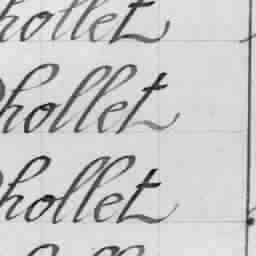 hollet
hollet
hollet